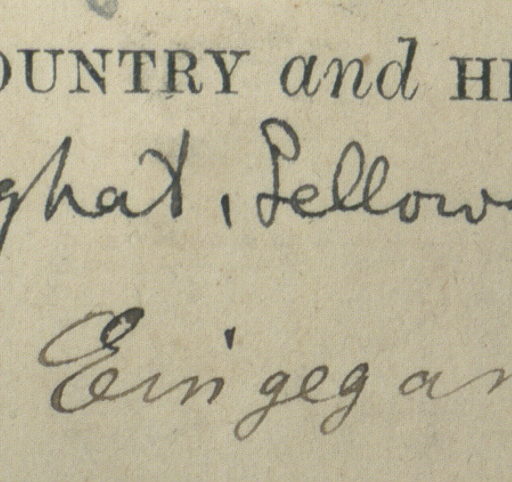 OUNTRY and HE
ghat, Sellow
Eingegan